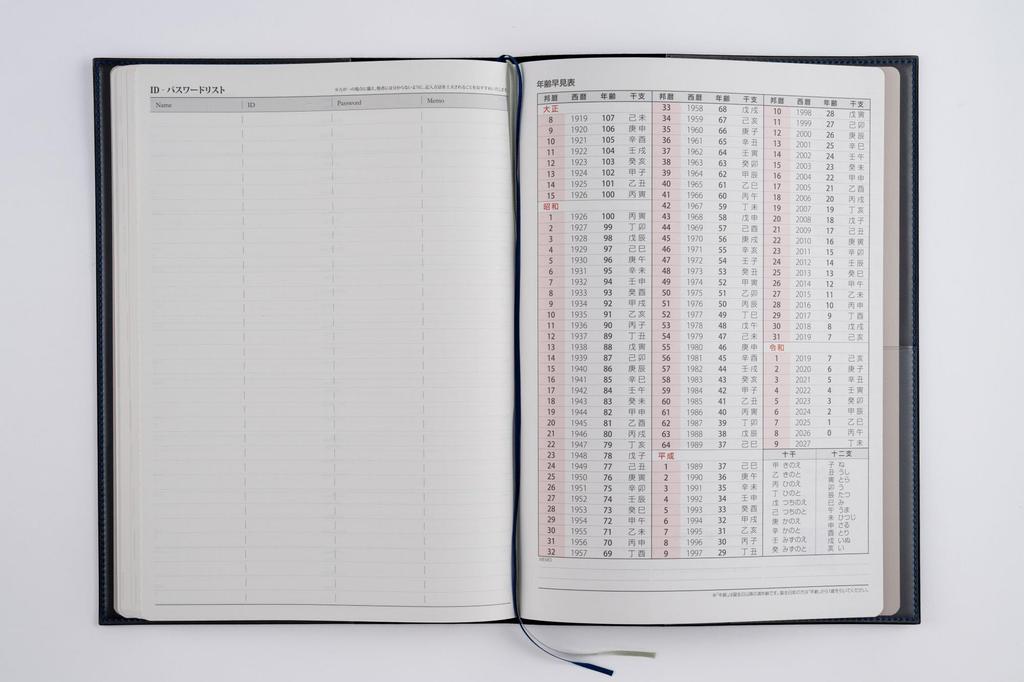 ID - パスワードリスト
※万が一の場合に備え、他者には分からないように、記入方法を工夫されることをおすすめいたします。
Name ID Password Memo
年齢早見表
邦暦 西暦 年齢 干支
大正
8 1919 107 己未
9 1920 106 庚申
10 1921 105 辛酉
11 1922 104 壬戌
12 1923 103 癸亥
13 1924 102 甲子
14 1925 101 乙丑
15 1926 100 丙寅
昭和
1 1926 100 丙寅
2 1927 99 丁卯
3 1928 98 戊辰
4 1929 97 己巳
5 1930 96 庚午
6 1931 95 辛未
7 1932 94 壬申
8 1933 93 癸酉
9 1934 92 甲戌
10 1935 91 乙亥
11 1936 90 丙子
12 1937 89 丁丑
13 1938 88 戊寅
14 1939 87 己卯
15 1940 86 庚辰
16 1941 85 辛巳
17 1942 84 壬午
18 1943 83 癸未
19 1944 82 甲申
20 1945 81 乙酉
21 1946 80 丙戌
22 1947 79 丁亥
23 1948 78 戊子
24 1949 77 己丑
25 1950 76 庚寅
26 1951 75 辛卯
27 1952 74 壬辰
28 1953 73 癸巳
29 1954 72 甲午
30 1955 71 乙未
31 1956 70 丙申
32 1957 69 丁酉
邦暦 西暦 年齢 干支
33 1958 68 戊戌
34 1959 67 己亥
35 1960 66 庚子
36 1961 65 辛丑
37 1962 64 壬寅
38 1963 63 癸卯
39 1964 62 甲辰
40 1965 61 乙巳
41 1966 60 丙午
42 1967 59 丁未
43 1968 58 戊申
44 1969 57 己酉
45 1970 56 庚戌
46 1971 55 辛亥
47 1972 54 壬子
48 1973 53 癸丑
49 1974 52 甲寅
50 1975 51 乙卯
51 1976 50 丙辰
52 1977 49 丁巳
53 1978 48 戊午
54 1979 47 己未
55 1980 46 庚申
56 1981 45 辛酉
57 1982 44 壬戌
58 1983 43 癸亥
59 1984 42 甲子
60 1985 41 乙丑
61 1986 40 丙寅
62 1987 39 丁卯
63 1988 38 戊辰
64 1989 37 己巳
平成
1 1989 37 己巳
2 1990 36 庚午
3 1991 35 辛未
4 1992 34 壬申
5 1993 33 癸酉
6 1994 32 甲戌
7 1995 31 乙亥
8 1996 30 丙子
9 1997 29 丁丑
邦暦 西暦 年齢 干支
10 1998 28 戊寅
11 1999 27 己卯
12 2000 26 庚辰
13 2001 25 辛巳
14 2002 24 壬午
15 2003 23 癸未
16 2004 22 甲申
17 2005 21 乙酉
18 2006 20 丙戌
19 2007 19 丁亥
20 2008 18 戊子
21 2009 17 己丑
22 2010 16 庚寅
23 2011 15 辛卯
24 2012 14 壬辰
25 2013 13 癸巳
26 2014 12 甲午
27 2015 11 乙未
28 2016 10 丙申
29 2017 9 丁酉
30 2018 8 戊戌
31 2019 7 己亥
令和
1 2019 7 己亥
2 2020 6 庚子
3 2021 5 辛丑
4 2022 4 壬寅
5 2023 3 癸卯
6 2024 2 甲辰
7 2025 1 乙巳
8 2026 0 丙午
9 2027 丁未
十干
甲 きのえ
乙 きのと
丙 ひのえ
丁 ひのと
戊 つちのえ
己 つちのと
庚 かのえ
辛 かのと
壬 みずのえ
癸 みずのと
十二支
子 ね
丑 うし
寅 とら
卯 う
辰 たつ
巳 み
午 うま
未 ひつじ
申 さる
酉 とり
戌 いぬ
亥 い
MEMO
※「年齢」は誕生日以降の満年齢です。誕生日前の方は「年齢」から1歳を引いてください。